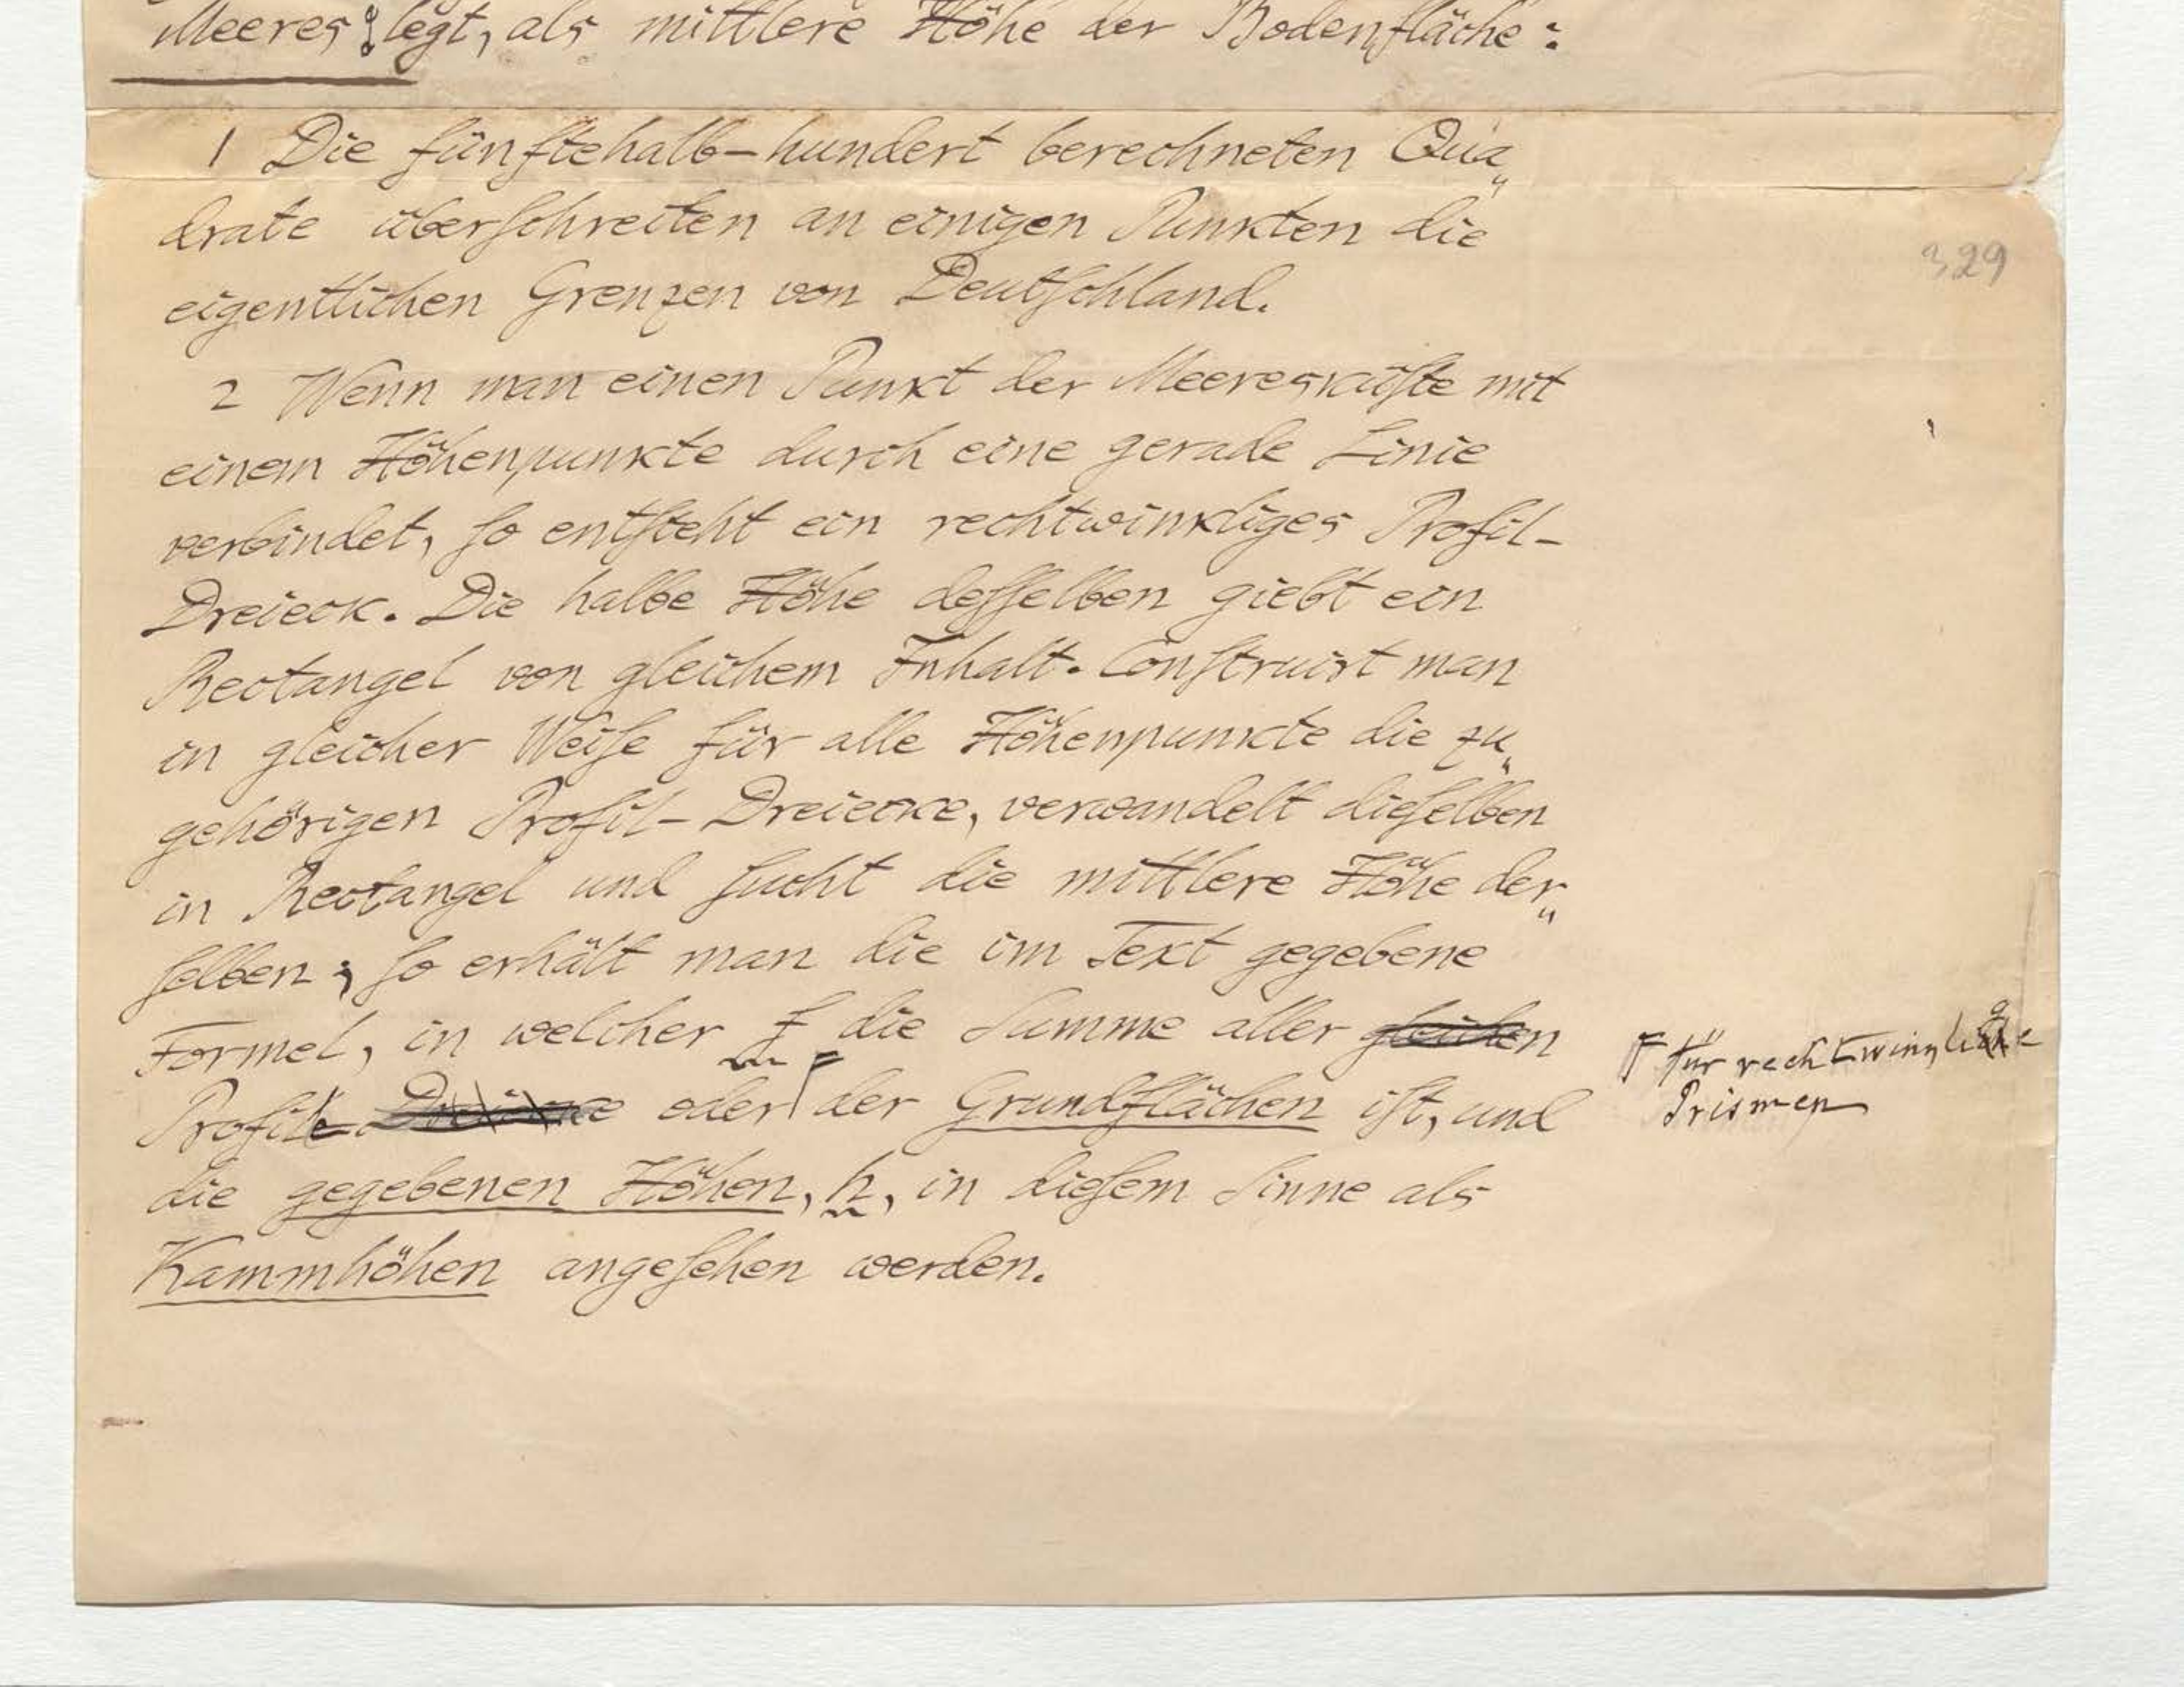 Meeres legt, als mittlere Höhe der Bodenfläche:
1 Die fünftehalb-hundert berechneten Qua„
drate überſchreiten an einigen Punkten die
eigentlichen Grenzen von Deutſchland.
329
2 Wenn man einen Punkt der Meereskuͤſte mit
einem Höhenpunkte durch eine gerade Linie
verbindet, ſo entſteht ein rechtwinkliges Profil-
Dreieck. Die halbe Höhe deſſelben giebt ein
Rectangel von gleichem Inhalt. Conſtruirt man
in gleicher Weiſe für alle Höhenpunkte die zu„
gehörigen Profil-Dreiecke, verwandelt dieſelben
in Rectangel und ſucht die mittlere Höhe der„
ſelben; ſo erhält man die im Text gegebene
Formel, in welcher f die Summe aller gleichen
Profile Dreiecke oder der Grundflächen iſt, und
für rechtwinglige
Prismen
die gegebenen Höhen, h, in dieſem Sinne als
Kammhöhen angeſehen werden.